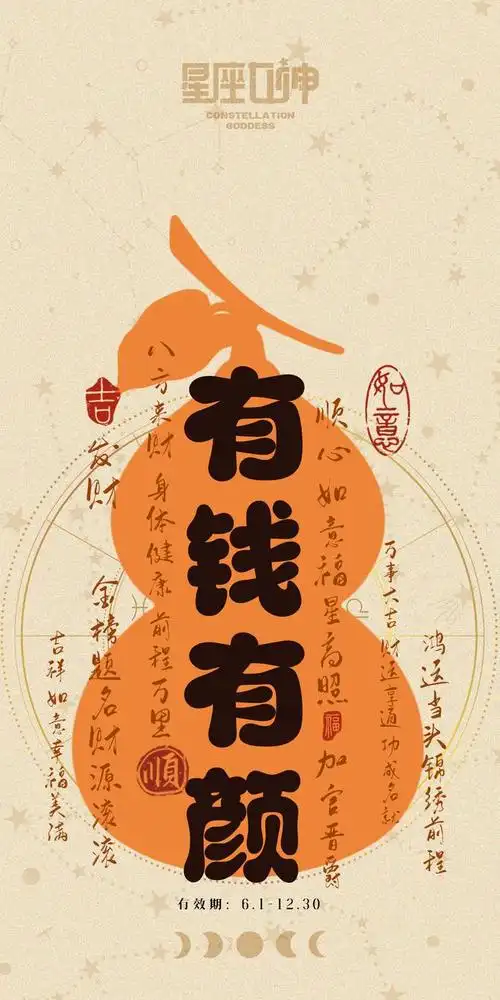 星座女神
CONSTELLATION
GODDESS
有钱有颜
如意
吉
发财
八方来财 身体健康 前程万里
顺心如意福星高照
福
加官晋爵
万事大吉 财运享通 功成名就
鸿运当头锦绣前程
金榜题名财源滚滚
吉祥如意幸福美满
順
有效期: 6.1-12.30